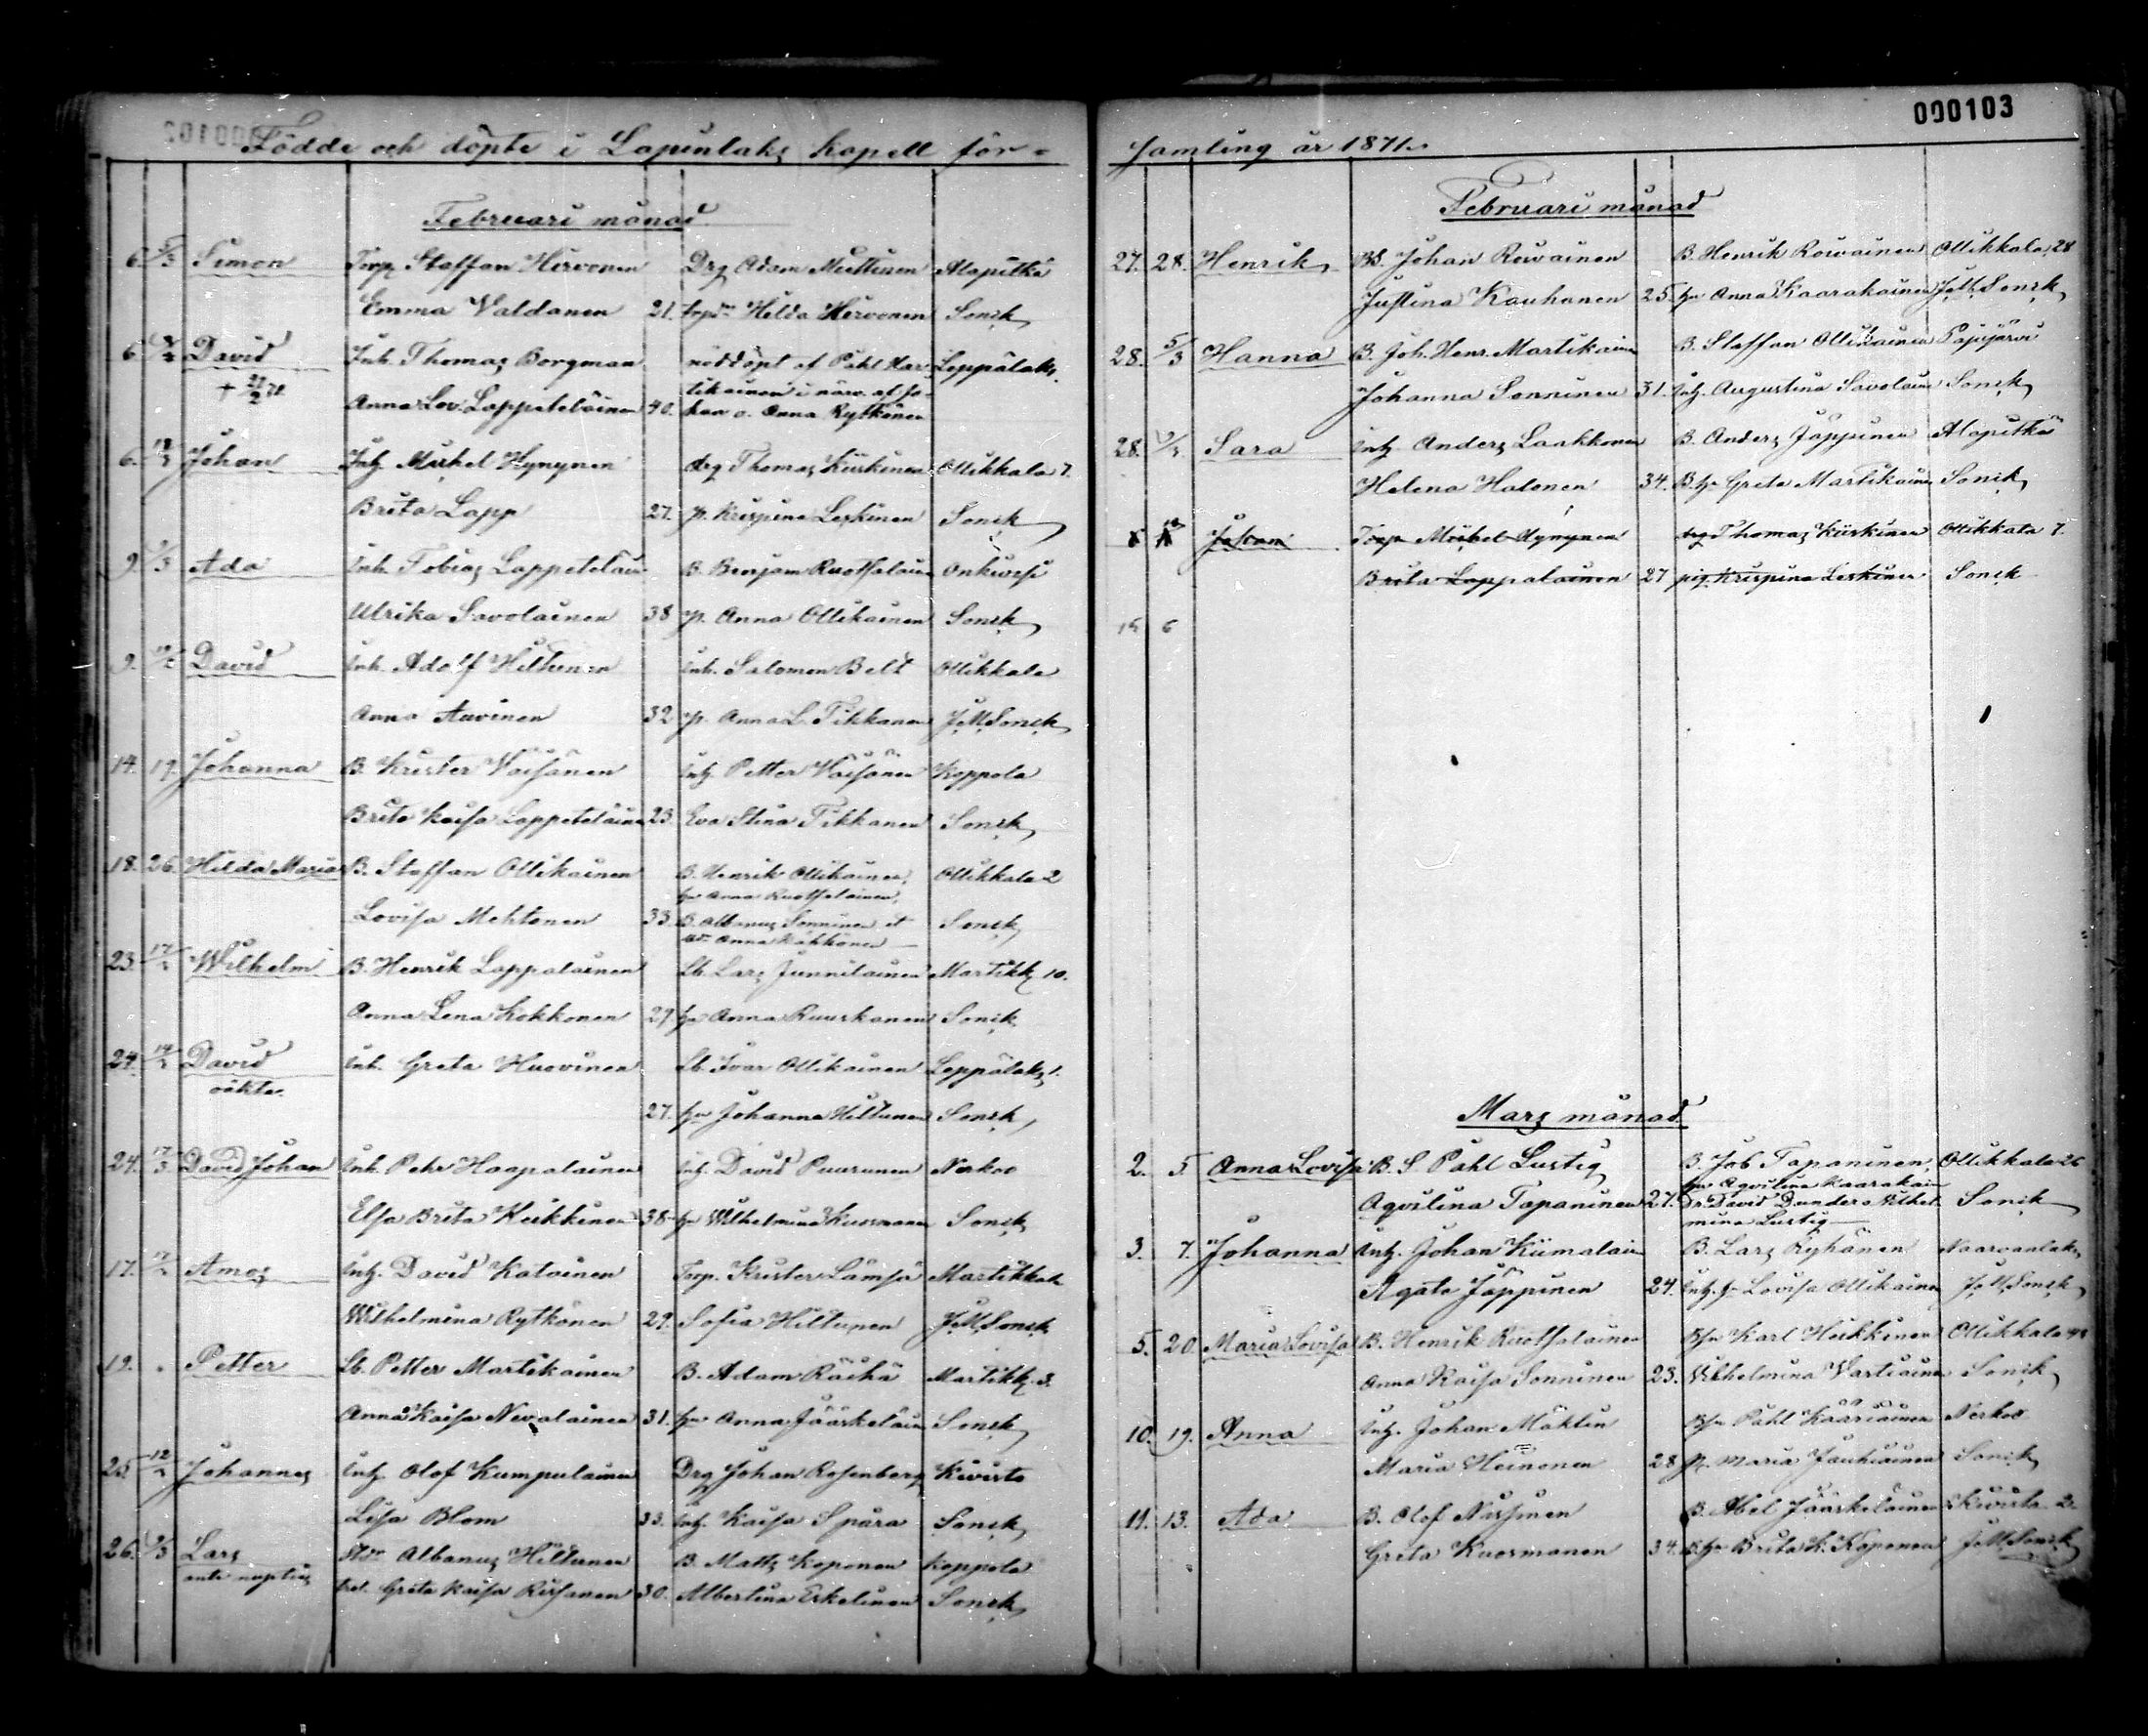 000103
Födde och döpte i Lapinlaks kapell för-
samling år 1871.
Februari månad
6. 5/3 Simon Torp. Staffan Hirvonen Drg Adam Miettinen Alapitkä
Emma Valdanen 21. Hilda Hirvonen Sonck
6. David Inh. Thomas Borgman nöddöpt af Påhl Mar- Leppälaks
tikainen i närv. af Jo-
Anna Lov. Lappeteläinen 40. han o. Anna Rytkönen
6. Johan Inh. Mickel Hynynen drg Thomas Kiiskinen Ollikkala 7.
Brita Lapp 27. p. Krispina Leskinen Sonck
9. Ada Inh. Tobias Lappeteläin B. Benjam Ruotsalain Onkivesi
Ulrika Savolainen 38 p. Anna Ollikainen Sonck
9. David Inh. Adolf Hiltunen Inh. Salomon Belt Ollikkala
Anna Auvinen 32 p. Anna L. Tikkanen J.M. Sonck
14. 19. Johanna B. Krister Väisänen Inh. Petter Väisänen Koppola
Brita Kaisa Lappeteläinen 23. Eva Stina Tikkanen Sonck
18. 26. Hilda Maria B. Staffan Ollikainen B. Henrik Ollikainen, Ollikkala 2
hu Anna Ruotsalainen,
Lovisa Mehtonen 33. B. Albanus Sonninen et Sonck
Anna Kokkonen
23. Wilhelm B. Henrik Lappalainen Lb. Lars Junnilainen Martikk 10.
Anna Lena Kokkonen 29 hu Anna Ruuskanen Sonck
24. David Inh. Greta Huovinen Lb. Ivar Ollikainen Leppälaks 1.
oäkta.
27. hu Johanna Hiltunen Sonck
24. 17/3 David Johan Inh. Pehr Haapalainen Inh. David Puurunen Nerkoo
Elsa Brita Keikkinen 38 hu Wilhelmina Kuosmanen Sonck
17. Amos Inh. David Katainen Torp. Krister Lämsä Martikkala
Wilhelmina Rytkönen 29. Sofia Hiltunen J.M. Sonck
19. Petter Lb. Petter Martikainen B. Adam Räihä Martikk. 3.
Anna Kaisa Nevalainen 31. hu Anna Jääskeläin Sonck
25. Johannes Inh. Olof Kumpulainen Drg Johan Rosenberg Kivisto
Lisa Blom 33. Inh. Kaisa Spåra Sonck
26. Lars Albanus Hiltunen B. Matts Koponen Koppola
ante nuptias Greta Kaisa Rissanen 30. Albertina Eskelinen Sonck
Februari månad
27. 28. Henrik B. Johan Roivainen B. Henrik Roivainen Ollikkala 28
Justina Kauhanen 25. hu Anna Kaarakainen J.M. Sonck
28. 5/3 Hanna B. Joh. Henr. Martikain B. Staffan Ollikainen Pajujärvi
Johanna Sonninen 31. Inh. Augustina Savolain Sonck
28. Sara Inh. Anders Laakkonen B. Anders Jäppinen Alapitkä
Helena Halonen 34. B. hu Greta Martikain Sonck
Johan Torp Mickel Hynynen drg Thomas Kiiskinen Ollikkala 7.
Brita Lappalainen 27 pig. Krispina Leskinen Sonck
15 6
Mars månad
2. 5. Anna Lovisa B. S. Påhl Lustig B. Job Tapaninen, Ollikkala 26
hu Aqvilina Kaarakain
Aqvilina Tapaninen 27. Dr. David Dunder o Vilhel- Sonck
mina Lustig
3. 7. Johanna Inh. Johan Kiimalain B. Lars Ryhänen Naarvanlaks
Agata Jäppinen 24. Inh. hu Lovisa Ollikainen J.M. Sonck
5. 20. Maria Lovisa B. Henrik Ruotsalainen Bsn Karl Heikkinen Ollikkala
Anna Kaisa Sonninen 23. Wilhelmina Wartiainen Sonck
10. 19. Anna Inh. Johan Mäklin Bsn Påhl Kääriäinen Nerkoo
Maria Heinonen 28 p. Maria Jauhiainen Sonck
11. 13. Ada B. Olof Nissinen B. Abel Jääskeläinen Kivista 2.
Greta Kuosmanen 34. B. hu Brita K. Koponen J.M. Sonck